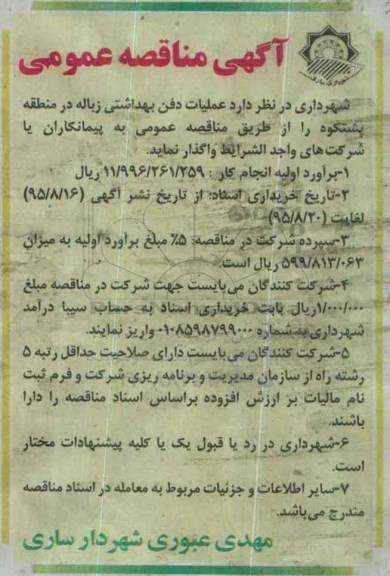 آگهی مناقصه عمومی
شهرداری در نظر دارد عملیات دفن بهداشتی زباله در منطقه
پشتکوه را از طریق مناقصه عمومی به پیمانکاران یا
شرکت‌های واجد الشرایط واگذار نماید.
۱-برآورد اولیه انجام کار : ۱۱/۹۹۶/۲۶۱/۲۵۹ ریال
۲-تاریخ خریداری اسناد: از تاریخ نشر آگهی (۹۵/۸/۱۶)
لغایت (۹۵/۸/۲۰)
۳-سپرده شرکت در مناقصه: ۵٪ مبلغ برآورد اولیه به میزان
۵۹۹/۸۱۳/۰۶۳ ریال است.
۴-شرکت کنندگان می‌بایست جهت شرکت در مناقصه مبلغ
۱/۰۰۰/۰۰۰ریال بابت خریداری اسناد به حساب سیبا درآمد
شهرداری به شماره ۰۱۰۸۵۹۸۷۹۹۰۰۰ واریز نمایند.
۵-شرکت کنندگان می‌بایست دارای صلاحیت حداقل رتبه ۵
رشته راه از سازمان مدیریت و برنامه ریزی شرکت و فرم ثبت
نام مالیات بر ارزش افزوده براساس اسناد مناقصه را دارا
باشند.
۶-شهرداری در رد یا قبول یک یا کلیه پیشنهادات مختار
است.
۷-سایر اطلاعات و جزئیات مربوط به معامله در اسناد مناقصه
مندرج می‌باشد.
مهدی عبوری شهردار ساری